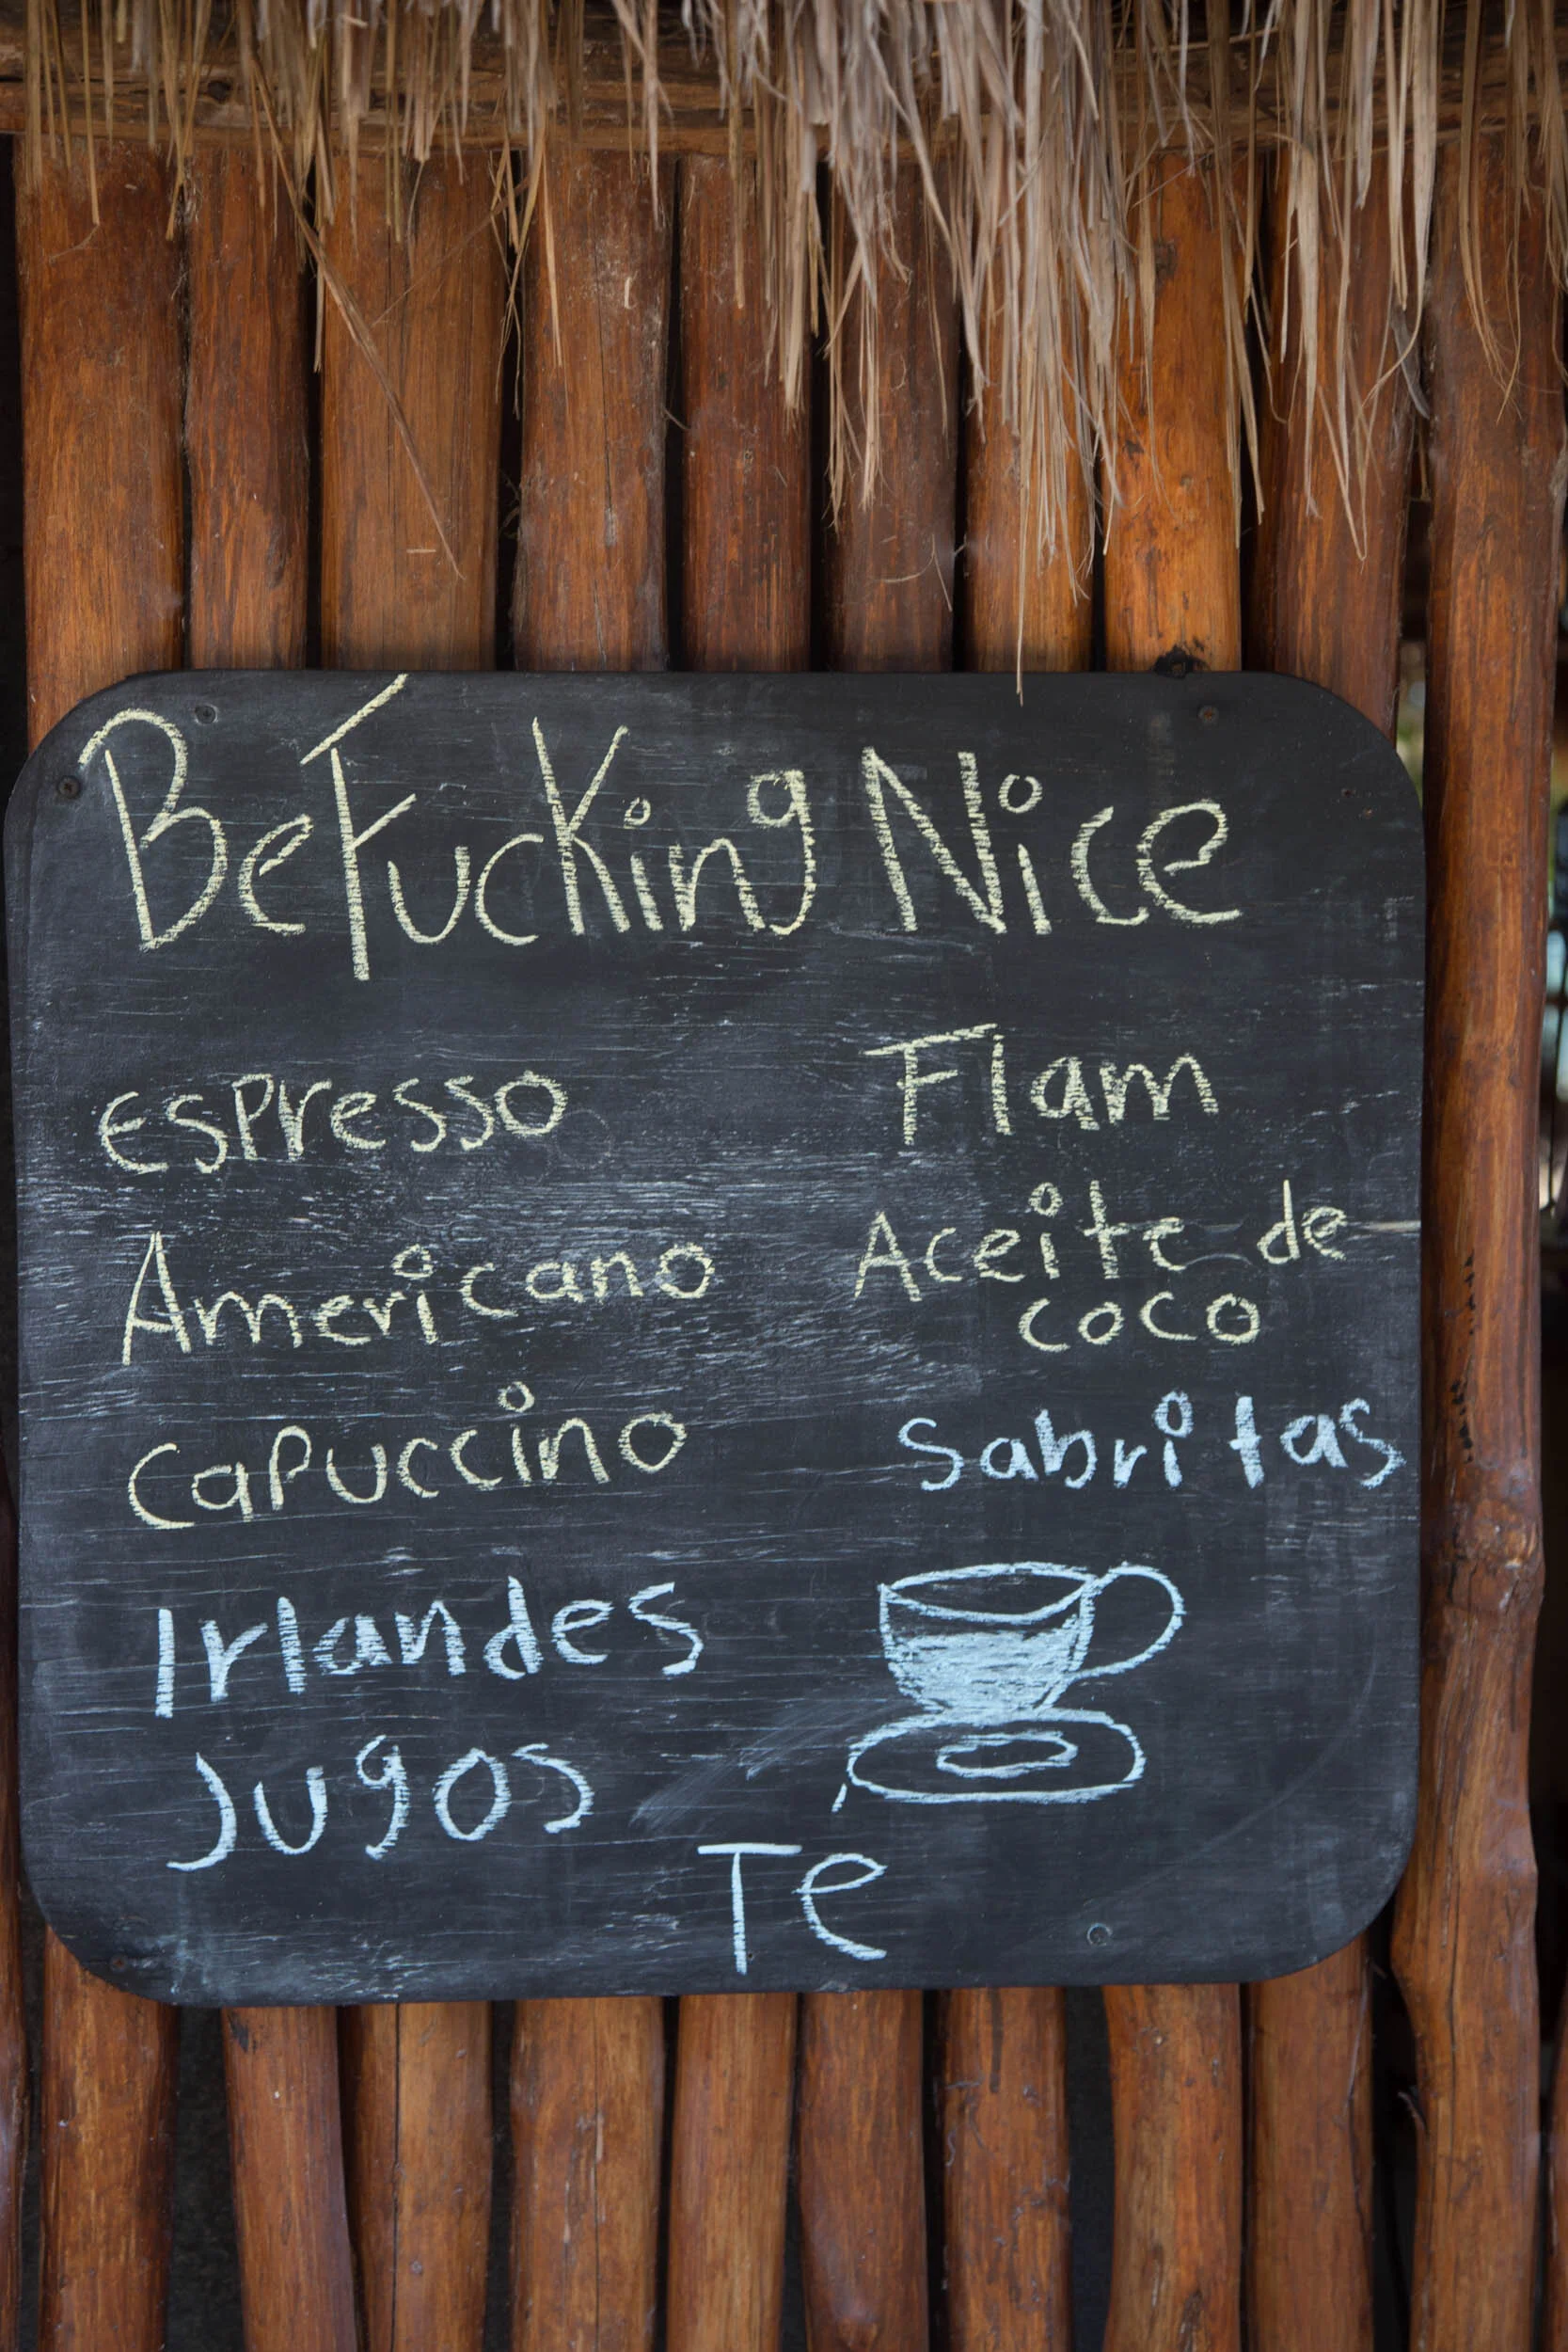 BeFucking Nice
espresso
Americano
capuccino
Irlandes
Jugos
Flam
Aceite de
coco
Sabritas
Te